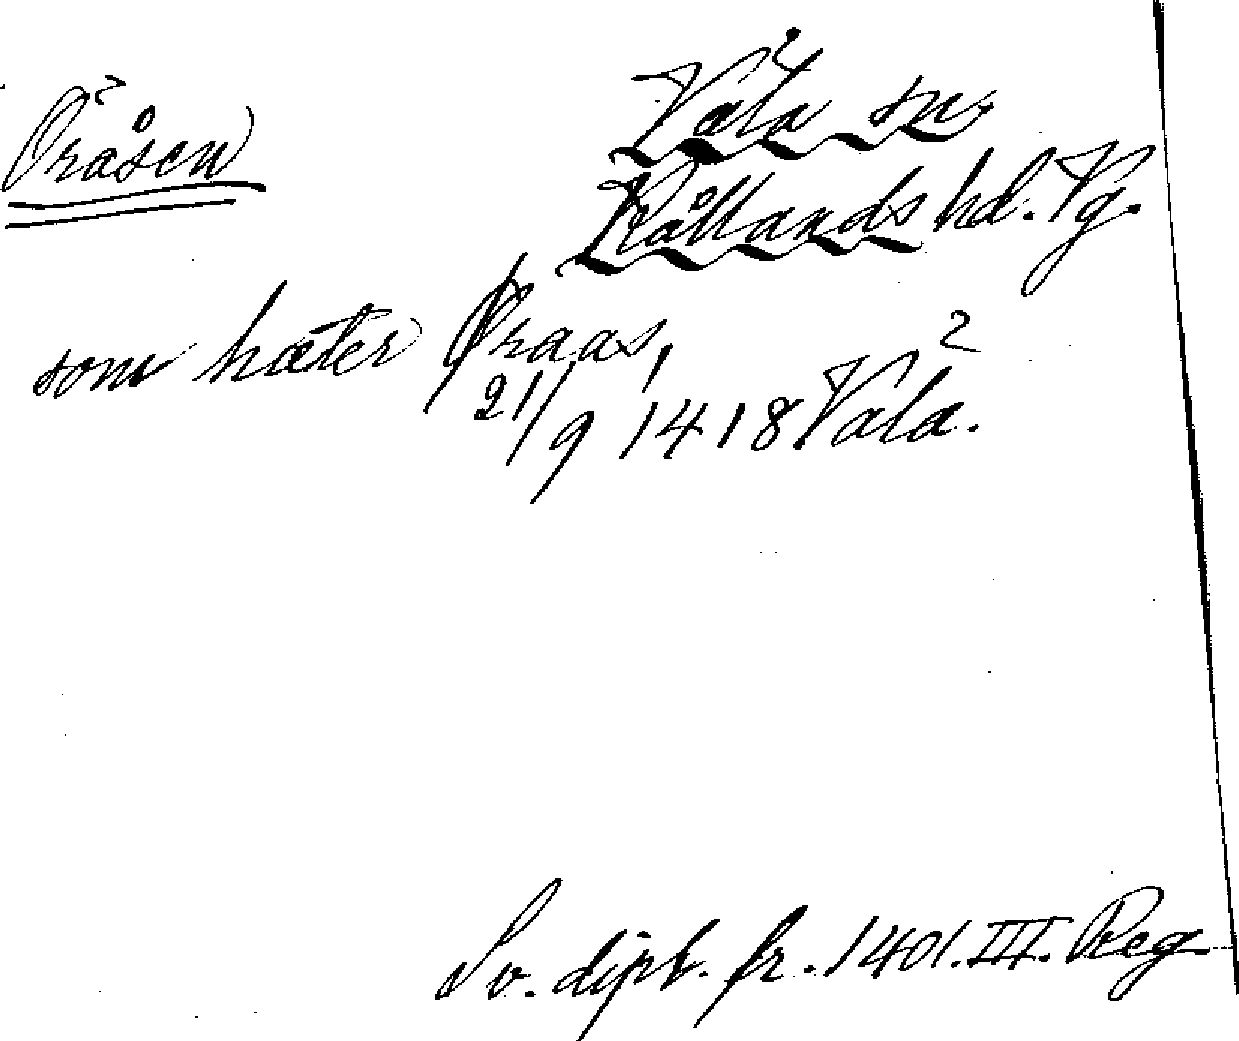 Öråsen
Våla sn.
Kållands hd. Vg.
som hæter Øraas,
21/9 1418 Vala.²
Sv. dipl. fr. 1401. III. Reg.